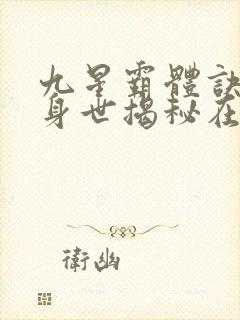 九星霸體訣
身世揭秘在
衛幽